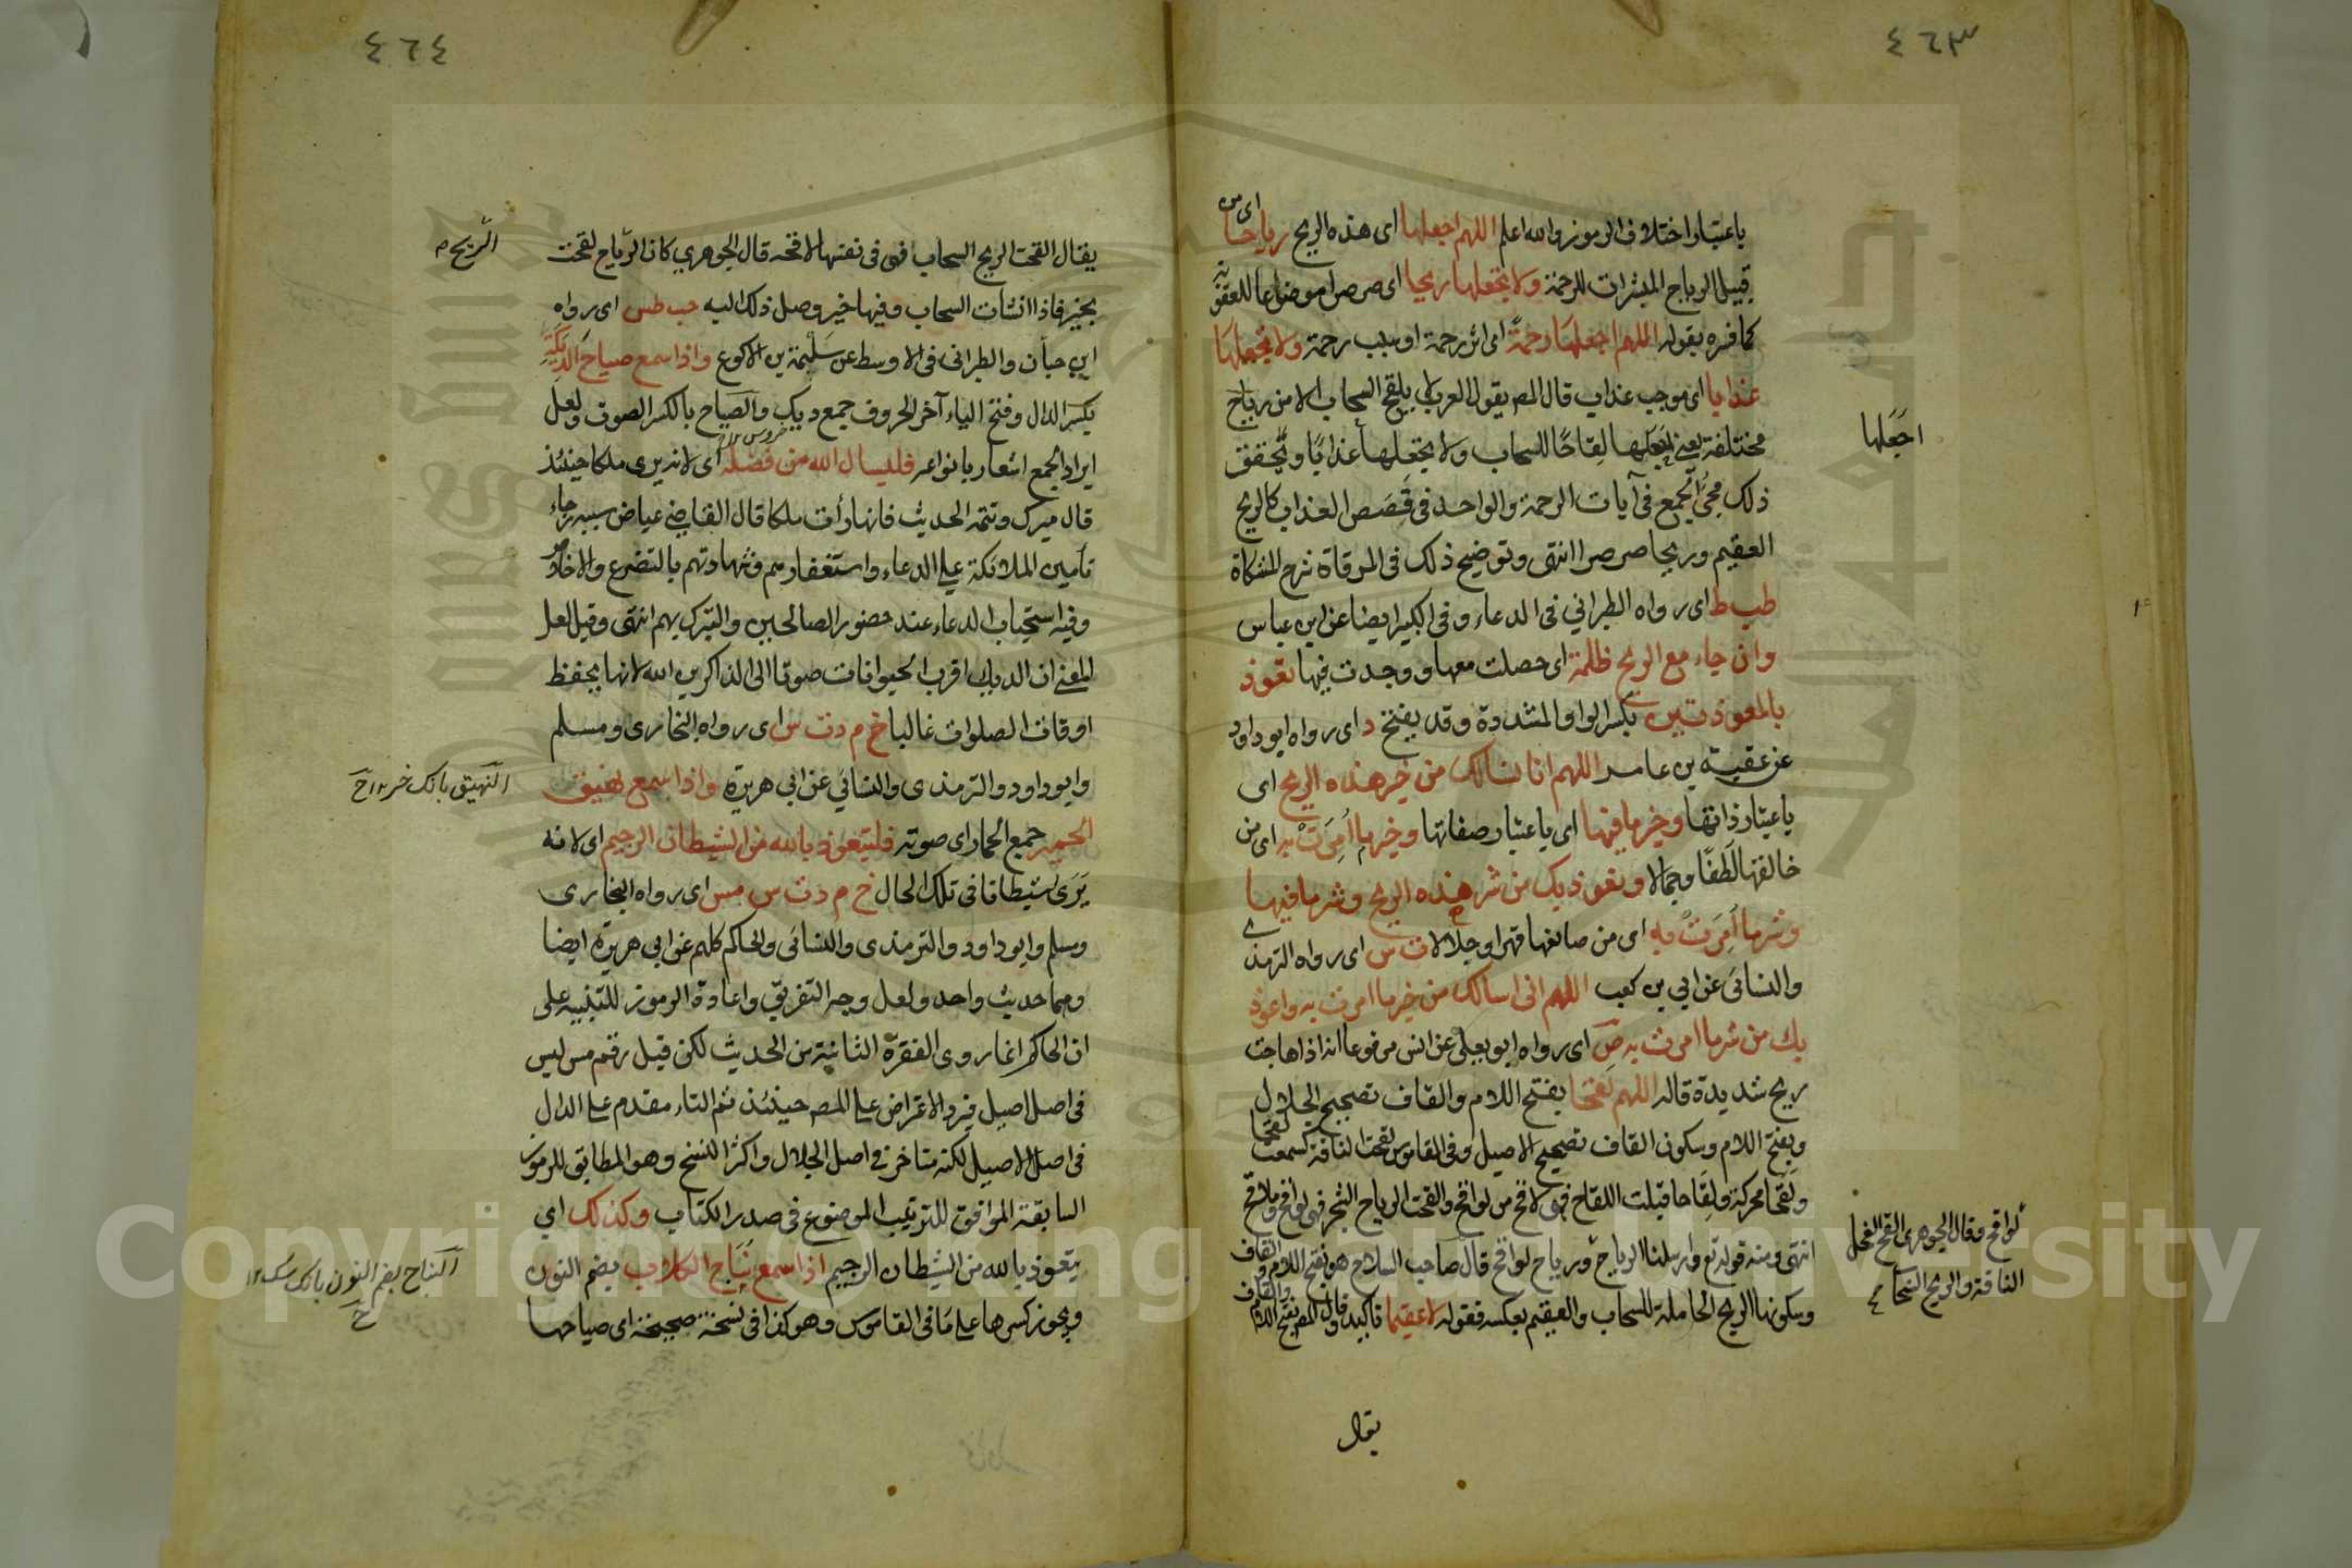 ٤٦٣
باعتبار اختلاف الرموز والله اعلم اللهم اجعلها اى هذه الريح رياحا اى من
قبيل الرياح المبشرات للرحمة ولا تجعلها ريحا اى صرصرا موضوعا للعقوبة
كما فسره بقوله اللهم اجعلها رحمة اى اثر رحمة او سبب رحمة ولا تجعلها
عذابا اى موجب عذاب قال المص يقول العرب لا يلقح السحاب الا من رياح
مختلفة يعنى اجعلها لقاحا للسحاب ولا يجعلها عذابا ويحقق
اجعلها
ذلك مجئ الجمع فى آيات الرحمة والواحد فى قصص العذاب كالريح
العقيم وريحا صرصرا انتهى وتوضيح ذلك فى المرقاة شرح المشكاة
طب ط اى رواه الطبرانى فى الدعاء وفى الكبير ايضا عن ابن عباس
وان جاء مع الريح ظلمة اى حصلت معها ووجدت فيها تعوذ
بالمعوذتين بكسر الواو المشددة وقد يفتح د اى رواه ابو داود
عن عقبة بن عامر اللهم انا نسالك من خير هذه الريح اى
باعتبار ذاتها وخير ما فيها اى باعتبار صفاتها وخير ما امرت به اى من
خالقها لطفا وجمالا ونعوذ بك من شر هذه الريح وشر ما فيها
وشر ما امرت به اى من صانعها قهرا وجلالا ت س اى رواه الترمذى
والنسائى عن ابي بن كعب اللهم انى اسالك من خير ما امرت به واعوذ
بك من شر ما امرت به ص اى رواه ابو يعلى عن انس مرفوعا انه اذا هاجت
ريح شديدة قاله اللهم لقحا بفتح اللام والقاف تصحيح الجلال
وبفتح اللام وسكون القاف تصحيح الاصيل وفى القاموس لقحت الناقة كسمعت لقحا
ولقحا محركة ولقاحا قبلت اللقاح فهى لاقح من لواقح والقحت الرياح الشجر فهى لواقح وملاقح
لواقح وقال الجوهرى القح الفحل
الناقة والريح السحاب
انتهى ومنه قوله تع وارسلنا الرياح ورياح لواقح قال صاحب السلاح هو بفتح اللام والقاف
وسكونها الريح الحاملة للسحاب والعقيم بعكسه فقوله لا عقيما تاكيد وقال المص بفتح اللام والقاف
يقال
٤٦٤
يقال القحت الريح السحاب فهى فى نفسها لاقحة قال الجوهري كان الرياح لقحت
الريح م
بخير فاذا انشات السحاب وفيها خير وصل ذلك اليه حب طس اى رواه
ابن حبان والطبرانى فى الاوسط عن سلمة بن الاكوع واذا سمع صياح الديكة
بكسر الدال وفتح الياء آخر الحروف جمع ديك والصياح بالكسر الصوت ولعل
ايراد الجمع اشعار بانواعه فليسال الله من فضله اى لانه يرى ملكا حينئذ
قال ميرك وتتمة الحديث فانها رأت ملكا قال القاضى عياض سببه رجاء
تأمين الملائكة على الدعاء واستغفارهم وشهادتهم بالتضرع والاخلاص
وفيه استحباب الدعاء عند حضور الصالحين والتبرك بهم انتهى وقيل لعل
المعنى ان الديك اقرب الحيوانات صوتا الى الذاكرين الله لانها يحفظ
اوقات الصلوات غالبا خ م د ت س اى رواه البخارى ومسلم
وابو داود والترمذى والنسائي عن ابي هريرة واذا سمع نهيق
النهيق بانك خر ١٢ ح
الحمير جمع الحمار اى صوته فليتعوذ بالله من الشيطان الرجيم اى لانه
يرى شيطانا فى تلك الحال خ م د ت س مس اى رواه البخارى
ومسلم وابو داود والترمذى والنسائى والحاكم كلهم عن ابي هريرة ايضا
وهما حديث واحد ولعل وجه التفريق واعادة الرموز للتنبيه على
ان الحاكم انما روى الفقرة الثانية من الحديث لكن قيل رقم مس ليس
فى اصل اصيل فيرد الاعتراض على المص حينئذ ثم التاء مقدم على الدال
فى اصل الاصيل لكنه متاخر فى اصل الجلال واكثر النسخ وهو المطابق للرموز
السابقة الموافق للترتيب الموضوع فى صدر الكتاب وكذلك اي
يتعوذ بالله من الشيطان الرجيم اذا سمع نباح الكلاب بضم النون
النباح بضم النون بانك سك ١٢
ح
ويجوز كسرها على ما فى القاموس وهو كذا فى نسخة صحيحة اى صياحها
Copyright © King Saud University